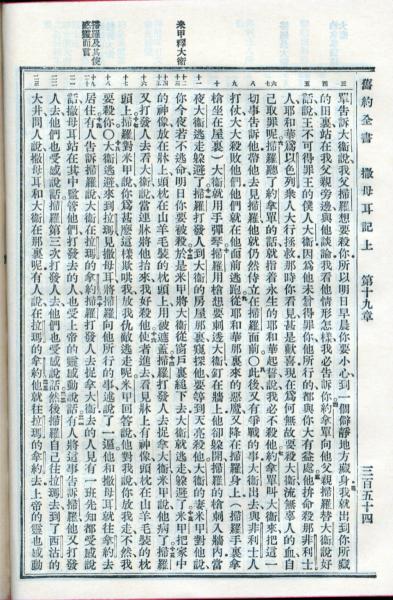 舊約全書 撒母耳記上 第十九章 三百五十四
單告訴大衛說我父掃羅想要殺你所以明日早晨你要小心到一個僻靜地方藏身我就出到你所藏
的田裏站在我父親旁邊與他談論我看他情形怎樣我必告訴你約拿單向他父親掃羅替大衛說好
話說王不可得罪王的僕人大衛因爲他未曾得罪你他所行的都與你大有益處他拚命殺那非利士
人耶和華爲以色列衆人大行拯救那時你看見甚是歡喜現在爲何無故要殺大衛流無辜人的血自
己取罪呢掃羅聽了約拿單的話就指着永生的耶和華起誓說我必不殺他約拿單叫大衛來把這一
切事告訴他帶他去見掃羅他就仍然侍立在掃羅面前○此後又有爭戰的事大衛出去與非利士人
打仗大大殺敗他們他們就在他面前逃跑從耶和華那裏來的惡魔又降在掃羅身上(掃羅手裏拿
槍坐在屋裏)大衛就用手彈琴掃羅用槍想要刺透大衛釘在牆上他卻躲開掃羅的槍刺入牆內當
夜大衛逃走躲避了掃羅打發人到大衛的房屋那裏窺探他要等到天亮殺他大衛的妻米甲對他說
你今夜若不逃命明日你要被殺於是米甲將大衛從窗戶裏縋下去大衛就逃走躲避了米甲把家中
米甲釋大衛
的神像放在牀上頭枕在山羊毛裝的枕頭上用被遮蓋掃羅打發人去捉拿大衛米甲說他病了掃羅
又打發人去看大衛說當連牀將他抬來我好殺他使者進去看見牀上有神像頭枕在山羊毛裝的枕
頭上掃羅對米甲說你爲甚麼這樣欺哄我放我仇敵逃走呢米甲回答說他對我說你放我走不然我
要殺你○大衛逃避來到拉瑪見撒母耳將掃羅向他所行的事述說了一遍他和撒母耳就往拿約去
居住有人告訴掃羅說大衛在拉瑪的拿約掃羅打發人去捉拿大衛去的人見有一班先知都受感說
掃羅及其使
感靈而言
話撒母耳站在其中監管他們打發去的人也受上帝的靈感動說話有人將這事告訴掃羅他又打發
人去他們也受感說話掃羅第三次打發人去他們也受感說話然後掃羅自己往拉瑪去到了西沽的
大井問人說撒母耳和大衛在那裏呢有人說在拉瑪的拿約他就往拉瑪的拿約去上帝的靈也感動